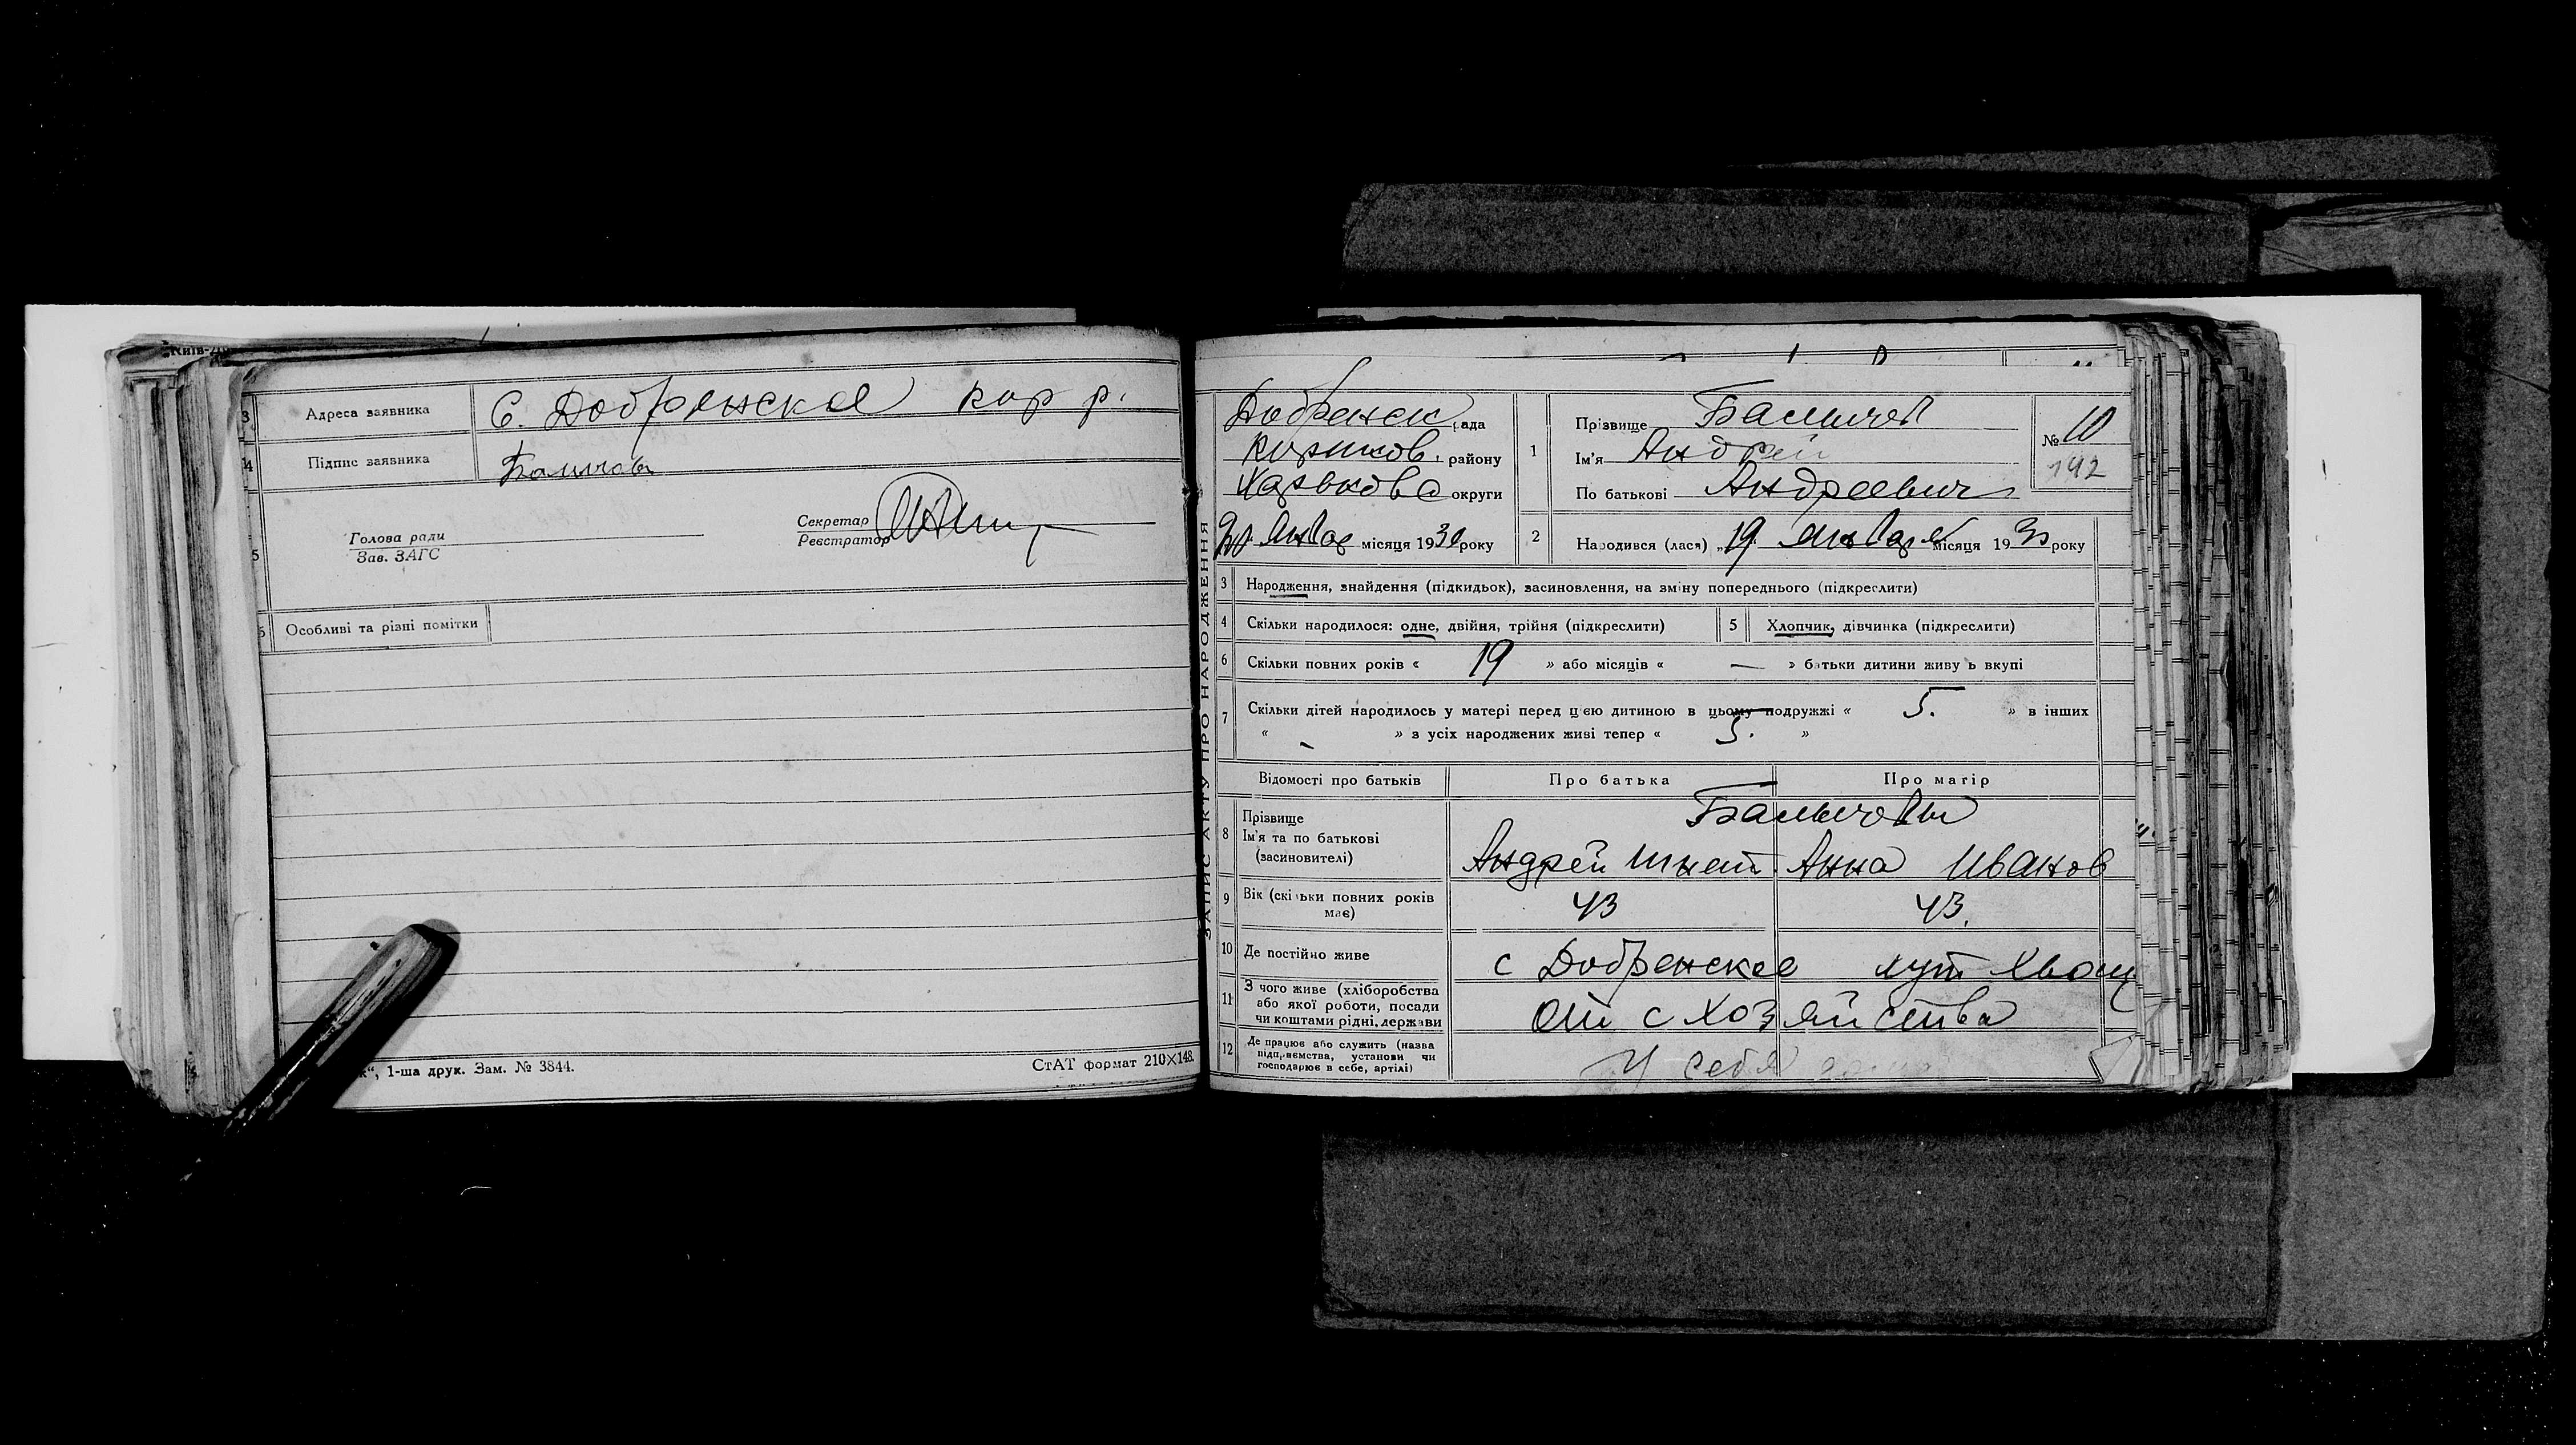 3 Адреса заявника С. Добрянское кор р.
14 Підпис заявника
5 Голова ради
Зав. ЗАГС
Секретар
Реєстратор
Особливі та різні помітки
", 1-ша друк. Зам. № 3844.
СтАТ формат 210×148.
ЗАПИС АКТУ ПРО НАРОДЖЕННЯ
Добренск рада
району
Харькова округи
20 Январ місяця 1930 року
1 Прізвище
Ім'я Андрей
По батькові Андреевич
№ 10
142
2 Народився (лася) „19 января місяця 1930 року
3 Народження, знайдення (підкидьок), засиновлення, на зміну попереднього (підкреслити)
4 Скільки народилося: одне, двійня, трійня (підкреслити)
5 Хлопчик, дівчинка (підкреслити)
6 Скільки повних років « 19 » або місяців « — » батьки дитини живуть вкупі
7 Скільки дітей народилось у матері перед цією дитиною в цьому подружжі « 5. » в інших
« - » з усіх народжених живі тепер « 5. »
Відомості про батьків Про батька Про матір
8 Прізвище
Ім'я та по батькові
(засиновителі)
Андрей Игнат Анна Иванов
9 Вік (скільки повних років
має)
43 43.
10 Де постійно живе с Добренское хут
11 З чого живе (хліборобства
або якої роботи, посади
чи коштами рідні, держави
От с хозяйства
12 Де працює або служить (назва
підприємства, установи чи
господарює в себе, артілі)
У себя